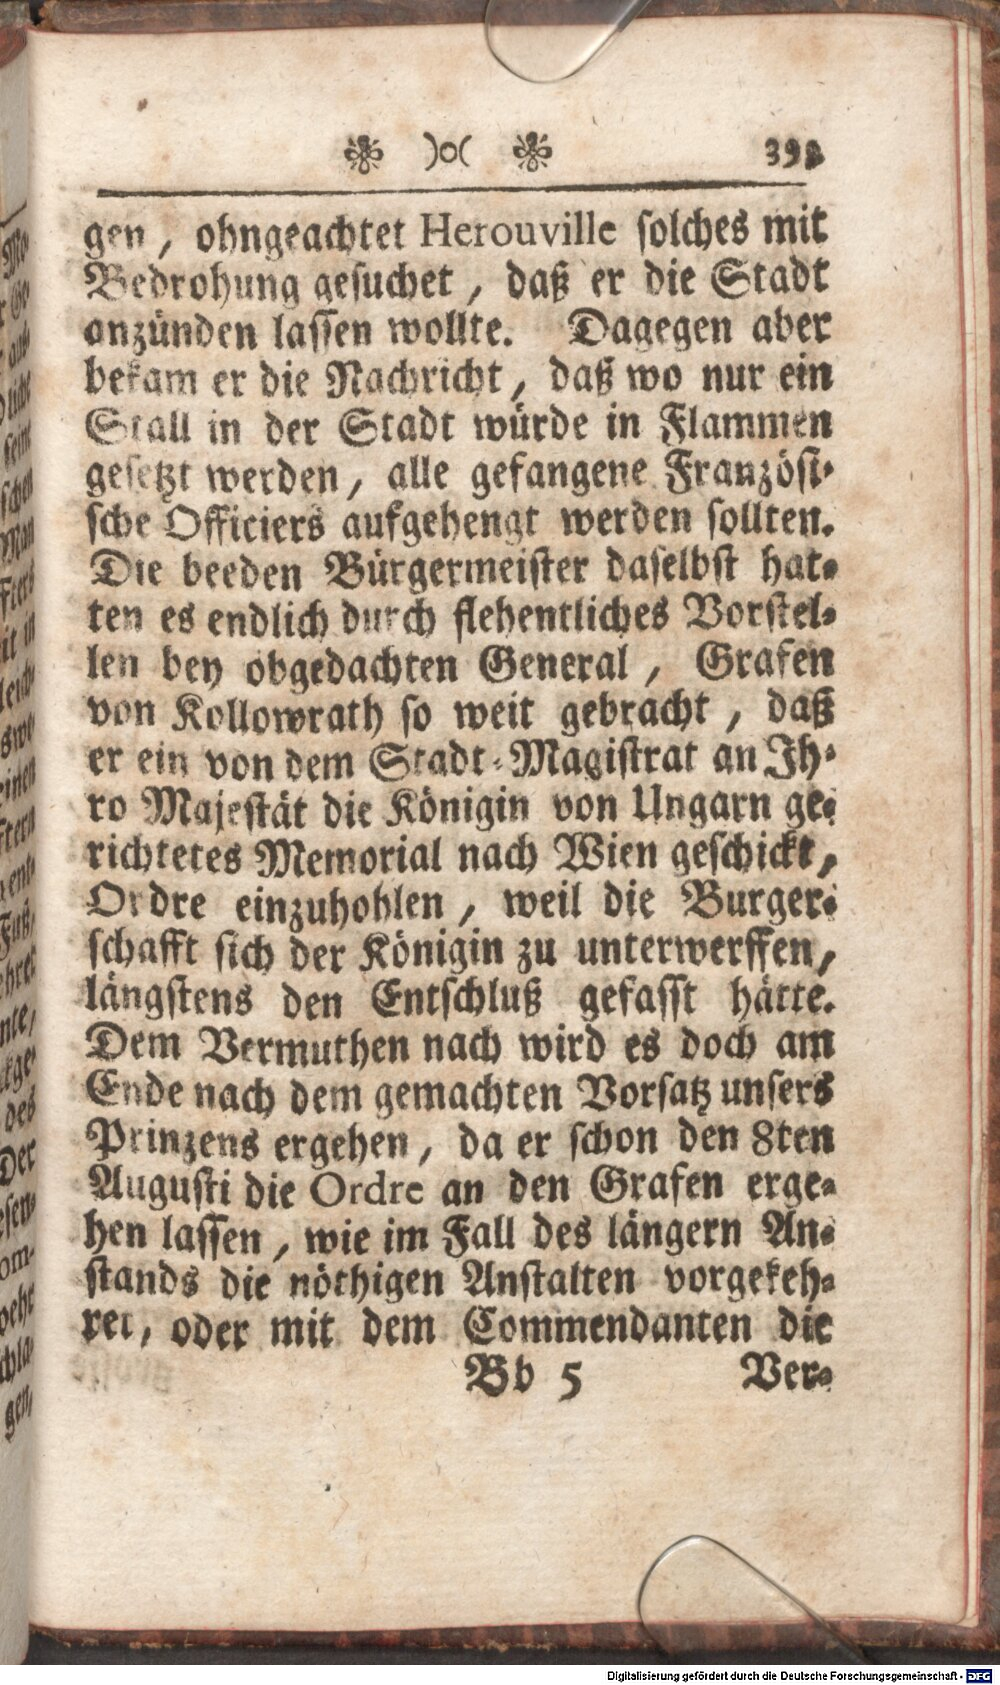 )o( 393
gen, ohngeachtet Herouville solches mit
Bedrohung gesuchet, daß er die Stadt
anzünden lassen wollte. Dagegen aber
bekam er die Nachricht, daß wo nur ein
Stall in der Stadt würde in Flammen
gesetzt werden, alle gefangene Französi-
sche Officiers aufgehengt werden sollten.
Die beeden Bürgermeister daselbst hat-
ten es endlich durch flehentliches Vorstel-
len bey obgedachten General, Grafen
von Kollowrath so weit gebracht, daß
er ein von dem Stadt-Magistrat an Ih-
ro Majestät die Königin von Ungarn ge-
richtetes Memorial nach Wien geschickt,
Ordre einzuhohlen, weil die Burger-
schafft sich der Königin zu unterwerffen,
längstens den Entschluß gefasst hätte.
Dem Vermuthen nach wird es doch am
Ende nach dem gemachten Vorsatz unsers
Prinzens ergehen, da er schon den 8ten
Augusti die Ordre an den Grafen erge-
hen lassen, wie im Fall des längern An-
stands die nöthigen Anstalten vorgekeh-
ret, oder mit dem Commendanten die
Bb 5 Ver-
Digitalisierung gefördert durch die Deutsche Forschungsgemeinschaft - DFG